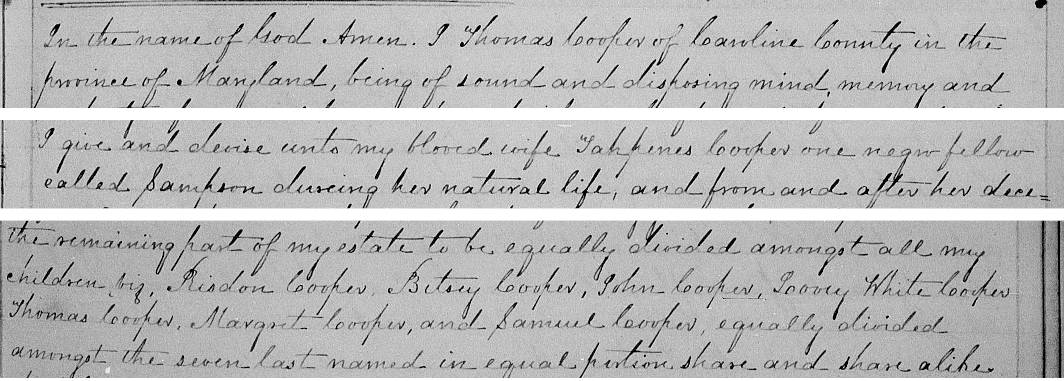 In the name of God Amen. I Thomas Cooper of Caroline County in the
province of Maryland, being of sound and disposing mind, memory and
I give and devise unto my bloved wife Tahpenes Cooper one negro fellow
called Sampson dureing her natural life, and from and after her dece=
the remaining part of my estate to be equally divided amongst all my
children, viz, Risdon Cooper, Betsey Cooper, John Cooper, Lovey White Cooper
Thomas Cooper, Margret Cooper, and Samuel Cooper, equally divided
amongst the seven last named in equal portion share and share alike.